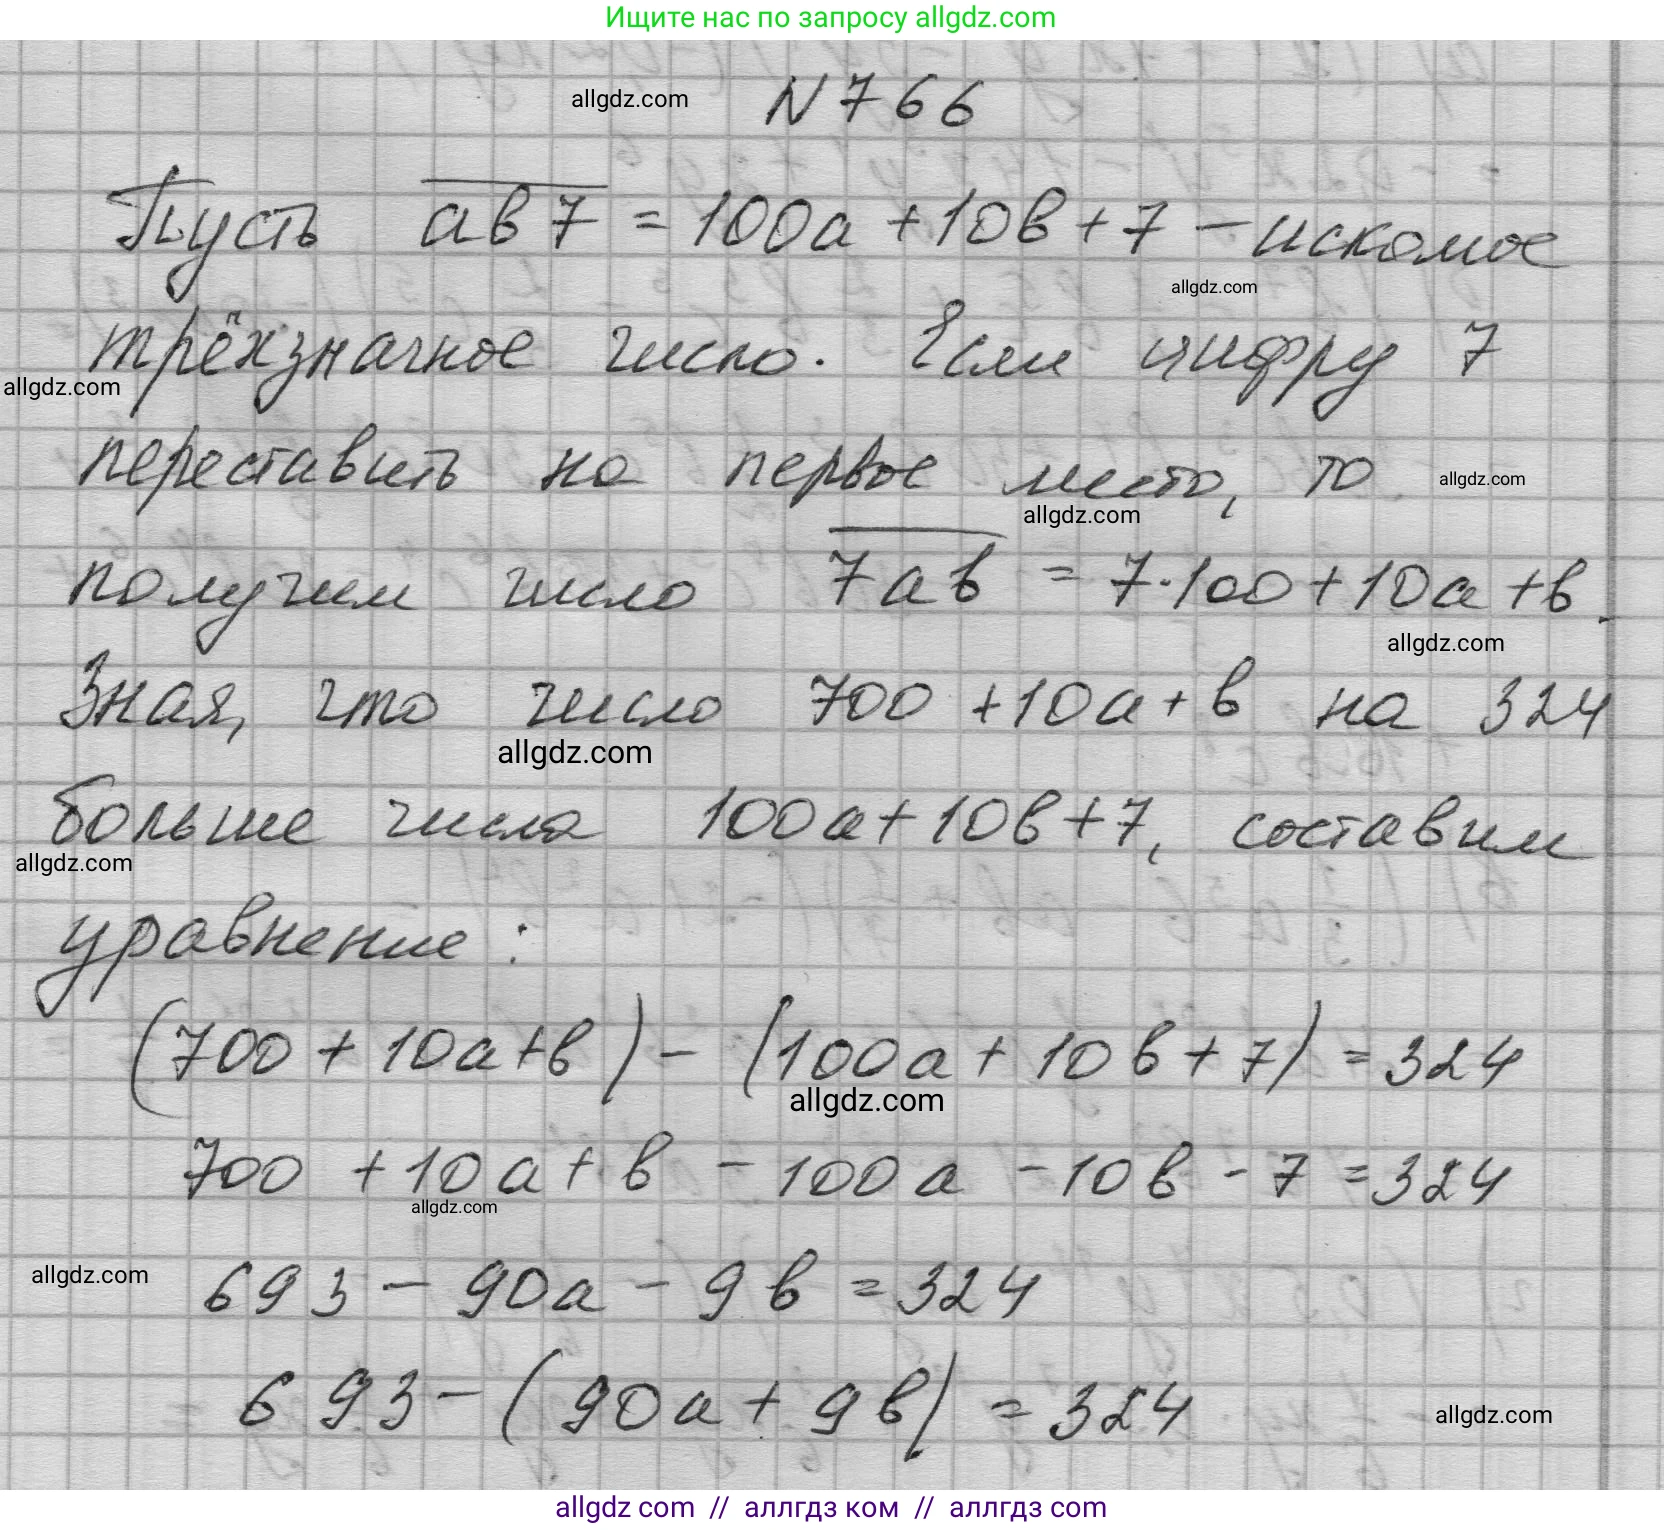 Ищите нас по запросу allgdz.com
allgdz.com N 766
Пусть ав7 = 100а + 10в + 7 – искомое
allgdz.com
трёхзначное число. Если цифру 7
allgdz.com
переставить на первое место, то allgdz.com
allgdz.com
получим число 7ав = 7·100 + 10а + в.
allgdz.com
Зная, что число 700 + 10а + в на 324
allgdz.com
больше числа 100а + 10в + 7, составим
allgdz.com
уравнение:
(700 + 10а + в) – (100а + 10в + 7) = 324
allgdz.com
700 + 10а + в – 100а – 10в – 7 = 324
allgdz.com
allgdz.com 693 – 90а – 9в = 324
693 – (90а + 9в) = 324 allgdz.com
allgdz com // аллгдз ком // аллгдз com